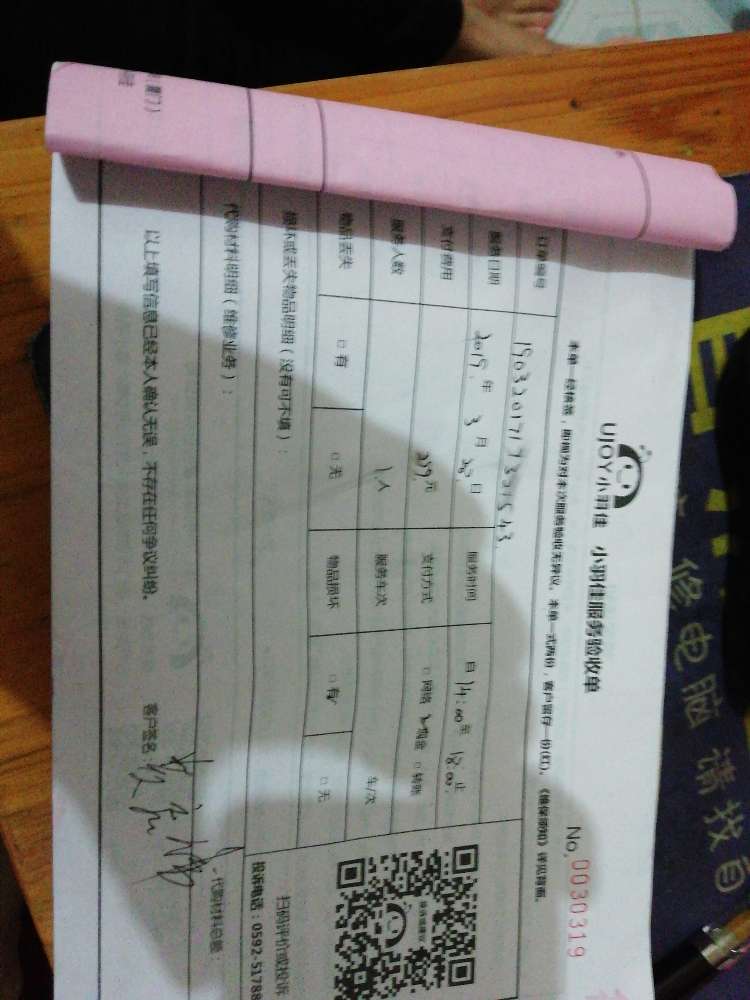 UJOY小羽佳 小羽佳服务验收单
No.0030319
本单一经情签，即视为对本次服务验收无异议。本单一式两份，客户留存一份(红)。《维保须知》详见背面。
订单编号
服务日期 2019年 3月 23日 服务时间 自 14:00 至 18:00 止
支付费用 元 支付方式 □网络 现金 □转账
服务人数 1人 服务车次 车/次
物品丢失 □有 □无 物品损坏 □有 □无
损坏或丢失物品明细（没有可不填）：
代购材料明细（维修业务）：
代购材料总额：
以上填写信息已经本人确认无误，不存在任何争议纠纷。 客户签名
扫码评价或投诉
投诉电话：0592-51788
修电脑 请找